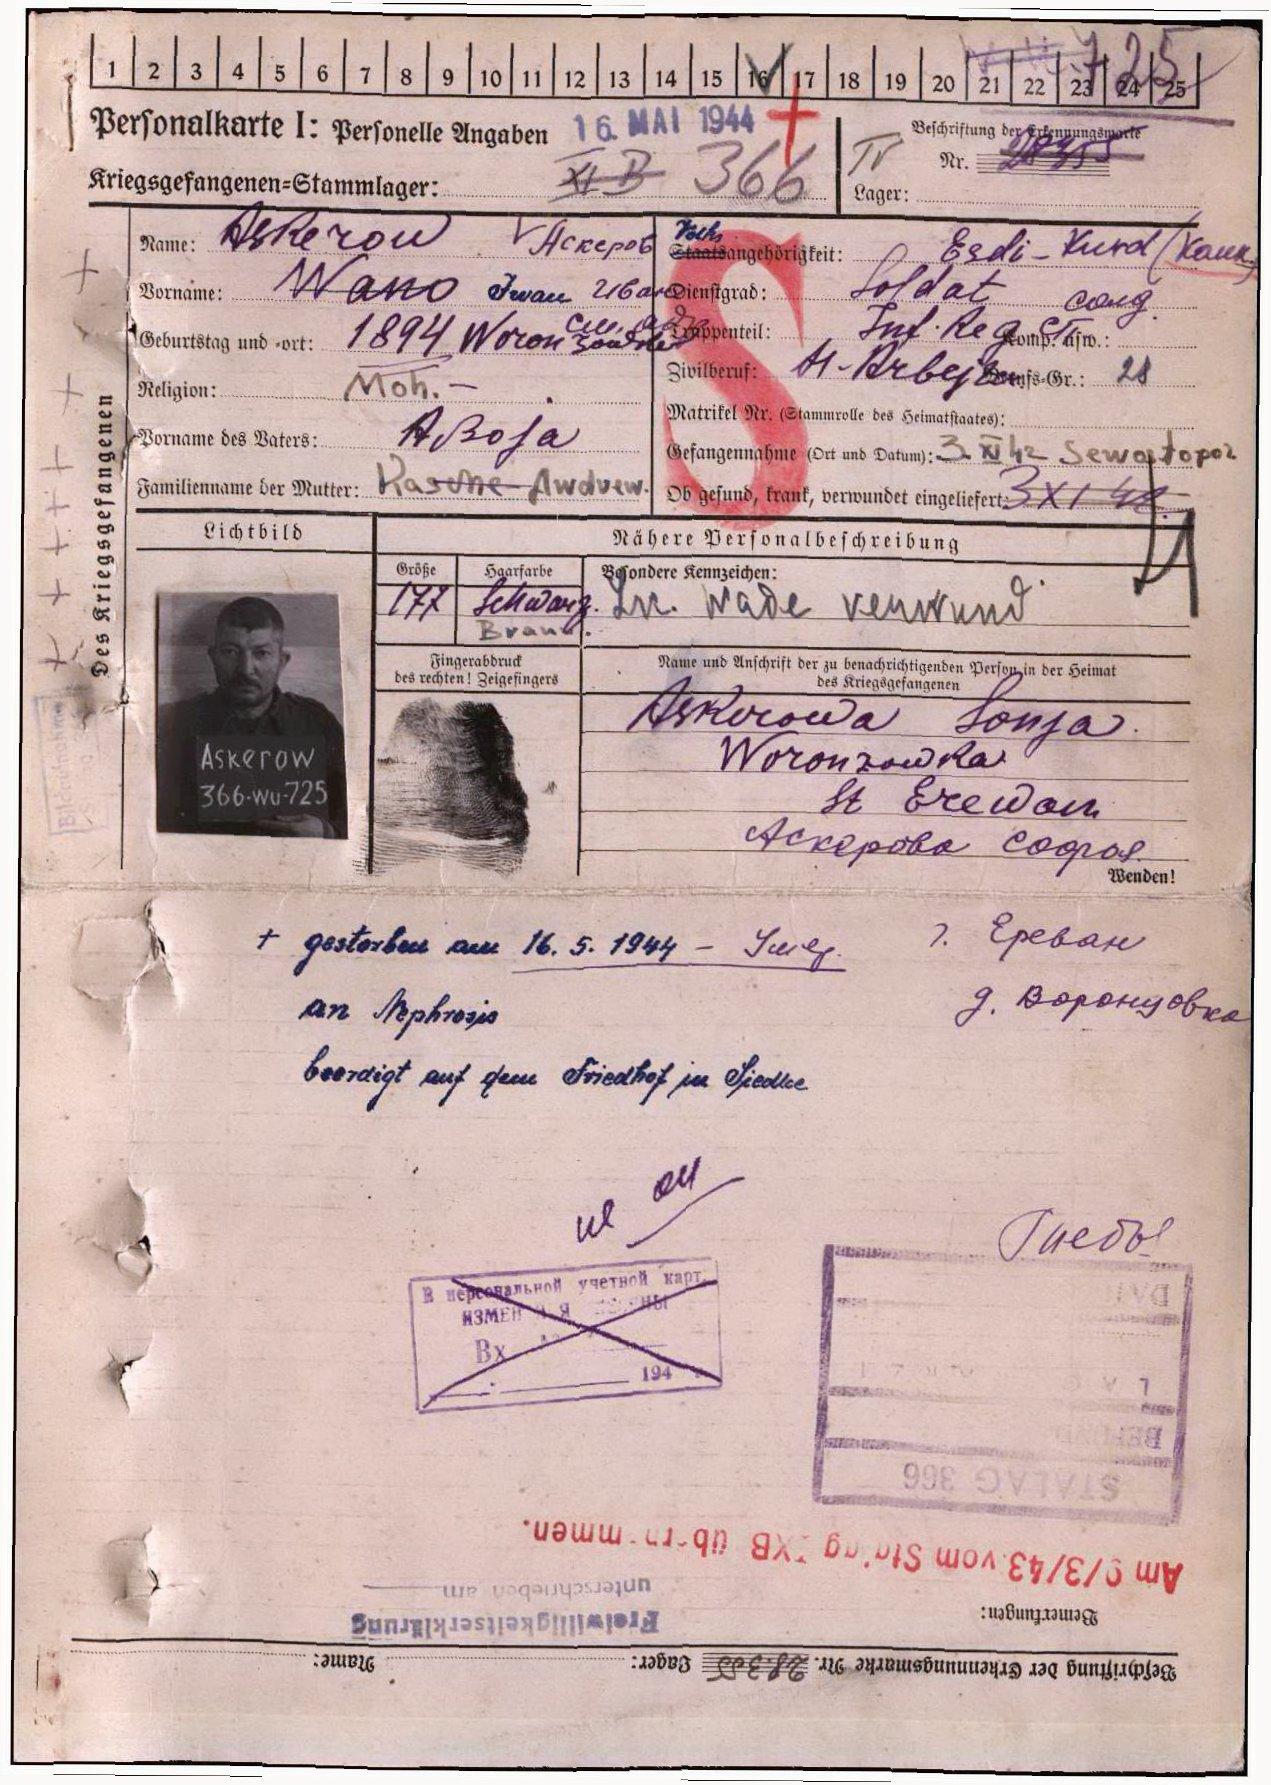 1 2 3 4 5 6 7 8 9 10 11 12 13 14 15 16 17 18 19 20 21 22 23 24 25
725
Personalkarte I: Personelle Angaben
16. MAI 1944
Kriegsgefangenen=Stammlager: XI B 366
Beschriftung der Erkennungsmarke
Nr. 28355
Lager:
Des Kriegsgefangenen
Name: Askerow Аскеров
Vorname: Wano Iwan Иван
Geburtstag und -ort: 1894
Religion: Moh. -
Vorname des Vaters:
Familienname der Mutter: Kasche Awdrew.
S
Volks
Staatsangehörigkeit: Esdi-Kurd
Dienstgrad: Soldat солд.
Truppenteil: Inf. Reg Komp. usw.:
Zivilberuf: Berufs-Gr.: 28
Matrikel Nr. (Stammrolle des Heimatstaates):
Gefangennahme (Ort und Datum): 3. XI 42 Sewastopol
Ob gesund, krank, verwundet eingeliefert: 3 XI 42.
Lichtbild
Nähere Personalbeschreibung
Größe
177
Haarfarbe
Schwarz.
Braun.
Besondere Kennzeichen:
Lk. Wade verwund
Fingerabdruck
des rechten! Zeigefingers
Name und Anschrift der zu benachrichtigenden Person in der Heimat
des Kriegsgefangenen
Askerowa Sonja.
Woronzowka
St Erewan
Аскерова София.
Wenden!
Askerow
366-Wu-725
+ gestorben am 16. 5. 1944 -
an Nephrosis
beerdigt auf dem Friedhof in Siedlce
г. Ереван
д. Воронцовка
В персональной учетной карт.
Вх
194
STALAG 366
Am /3/43 vom Stalag XB übernommen.
Freiwilligkeitserklärung
unterschrieben am
Bemerkungen:
Beschriftung der Erkennungsmarke Nr. 28.355 Lager: Name: